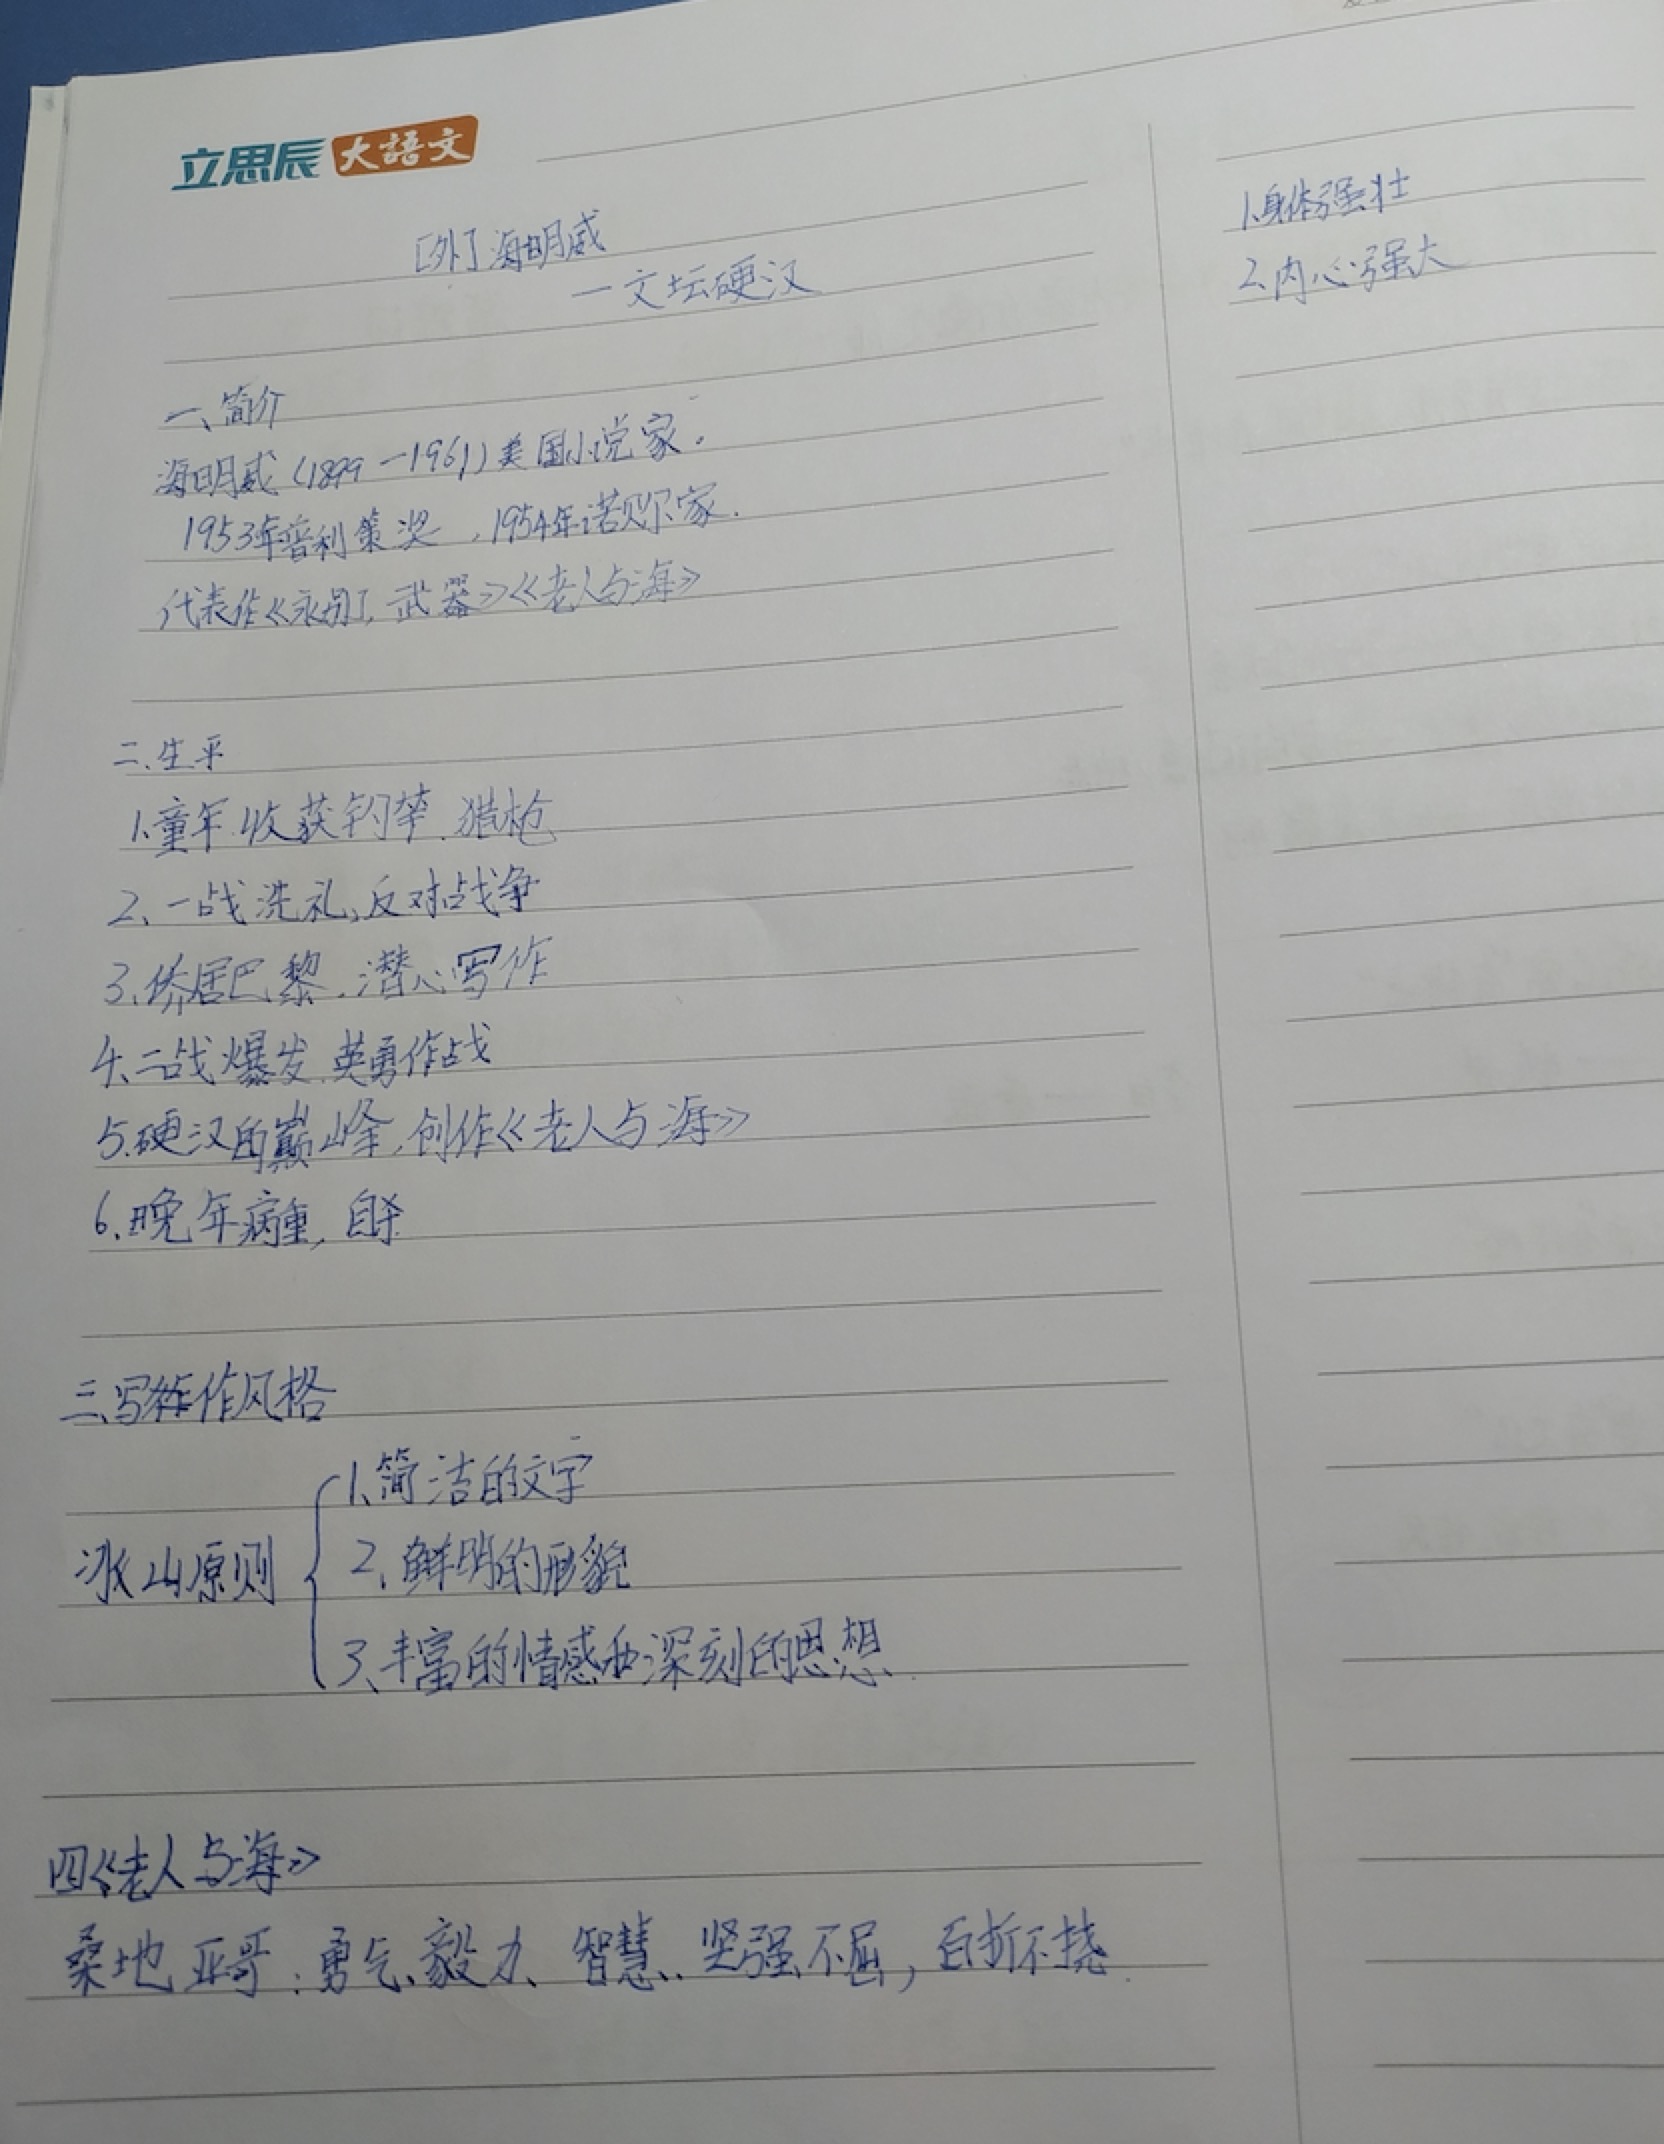 立思辰大語文
[外]海明威
一文坛硬汉
一、简介
海明威(1899一1961)美国小说家.
1953年普利策奖,1954年诺贝尔家.
代表作《永别了,武器》《老人与海》
二.生平
1.童年收获钓竿.猎枪
2、一战洗礼,反对战争
3.侨居巴黎.潜心写作
4.二战爆发.英勇作战
5.硬汉的巅峰,创作《老人与海》
6.晚年病重,自杀
三、写作风格
冰山原则
1、简洁的文字
2.鲜明的形貌
3、丰富的情感和深刻的思想.
四《老人与海》
桑地亚哥:勇气、毅力、智慧、坚强不屈,百折不挠.
1.身体强壮
2.内心强大